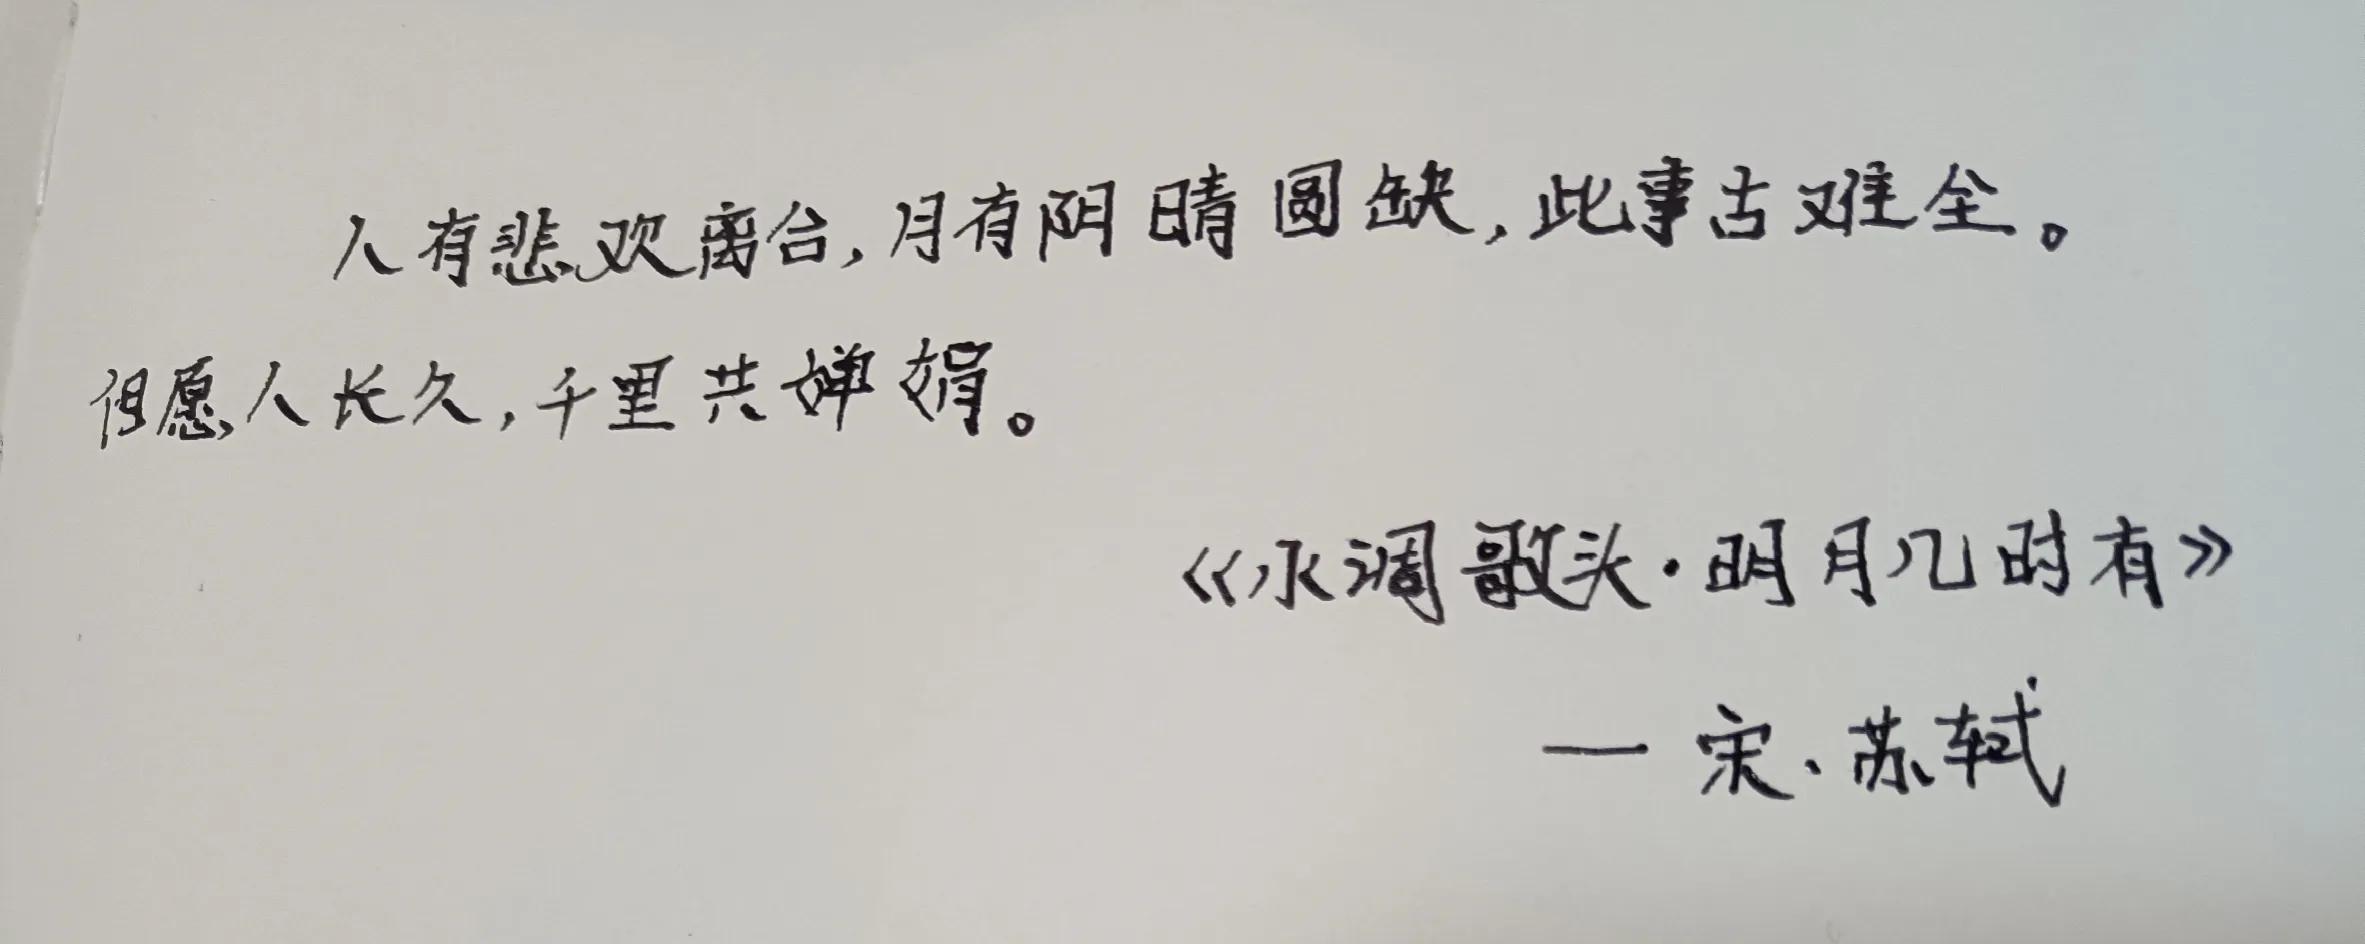 人有悲欢离合,月有阴晴圆缺,此事古难全。
但愿人长久,千里共婵娟。
《水调歌头·明月几时有》
— 宋·苏轼